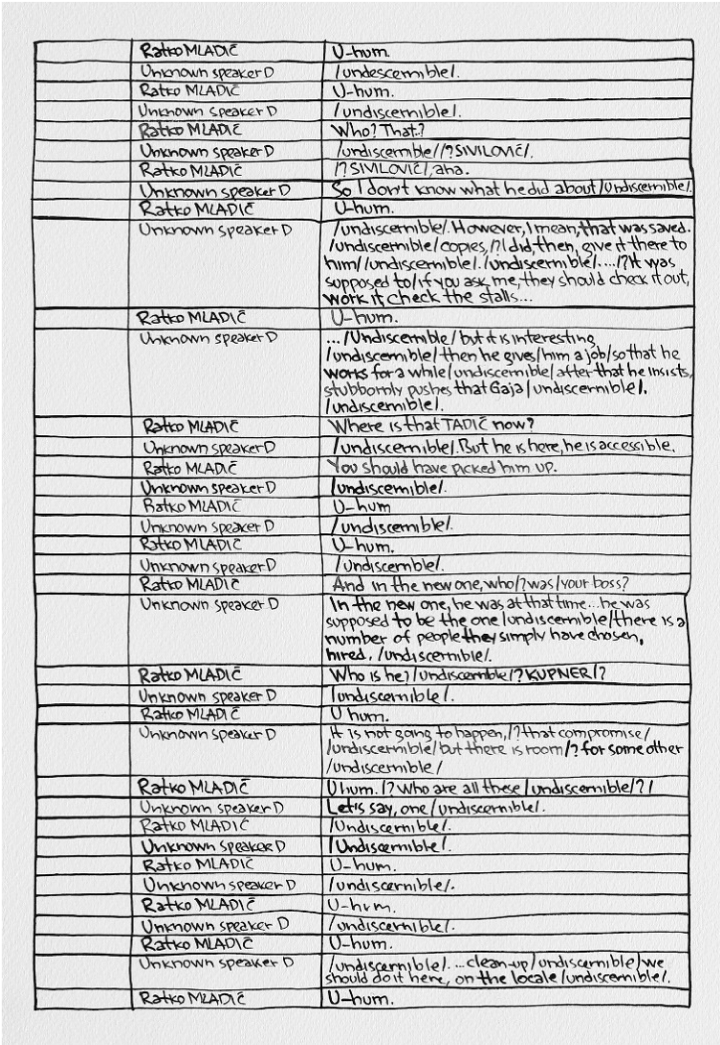 Ratko MLADIĆ U-hum.
Unknown speaker D /undescernible/.
Ratko MLADIĆ U-hum.
Unknown speaker D /undiscernible/.
Ratko MLADIĆ Who? That?
Unknown speaker D /undiscernible//?SIVILOVIĆ/.
Ratko MLADIĆ /?SIVILOVIĆ/, aha.
Unknown speaker D So I don't know what he did about /undiscernible/.
Ratko MLADIĆ U-hum.
Unknown speaker D /undiscernible/. However, I mean, that was saved.
/undiscernible/ copies, /?I did, then, give it there to
him//undiscernible/. /undiscernible/..../?It was
supposed to/if you ask me, they should check it out,
work it check the stalls...
Ratko MLADIĆ U-hum.
Unknown speaker D .../Undiscernible/ but it is interesting
/undiscernible/ then he gives/him a job/so that he
works for a while/undiscernible/ after that he insists,
stubbornly pushes that Gaja/undiscernible/.
/undiscernible/.
Ratko MLADIĆ Where is that TADIĆ now?
Unknown speaker D /undiscernible/. But he is here, he is accessible.
Ratko MLADIĆ You should have picked him up.
Unknown speaker D /undiscernible/.
Ratko MLADIĆ U-hum
Unknown speaker D /undiscernible/.
Ratko MLADIĆ U-hum.
Unknown speaker D /undiscernible/.
Ratko MLADIĆ And in the new one, who/?was/your boss?
Unknown speaker D In the new one, he was at that time...he was
supposed to be the one/undiscernible/there is a
number of people they simply have chosen,
hired. /undiscernible/.
Ratko MLADIĆ Who is he?/undiscernible/?KUPNER/?
Unknown speaker D /undiscernible/.
Ratko MLADIĆ U hum.
Unknown speaker D It is not going to happen,/?that compromise/
/undiscernible/but there is room/?for some other
/undiscernible/
Ratko MLADIĆ U hum. /?Who are all these/undiscernible/?/
Unknown speaker D Let's say, one/undiscernible/.
Ratko MLADIĆ /Undiscernible/.
Unknown speaker D /Undiscernible/.
Ratko MLADIĆ U-hum.
Unknown speaker D /undiscernible/.
Ratko MLADIĆ U-hum.
Unknown speaker D /undiscernible/.
Ratko MLADIĆ U-hum.
Unknown speaker D /undiscernible/. ...clean-up/undiscernible/we
should do it here, on the locale/undiscernible/.
Ratko MLADIĆ U-hum.